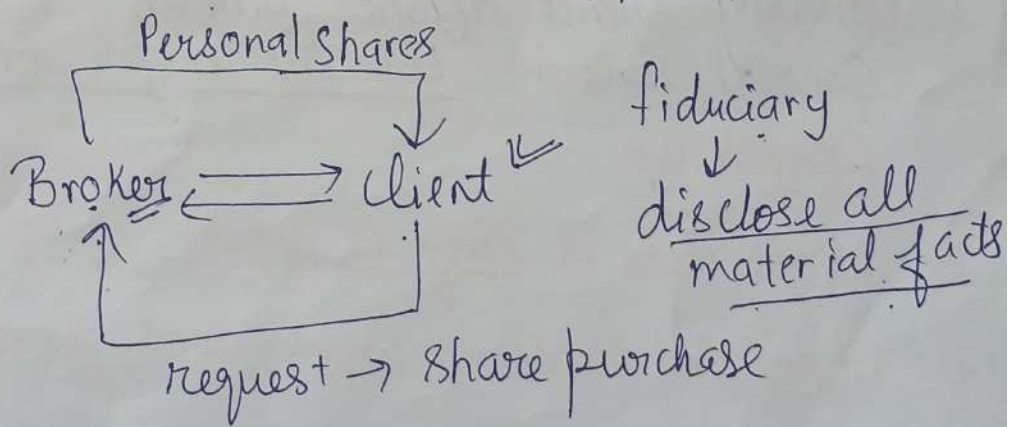 Personal Shares
Broker ⇄ Client
fiduciary
↓
disclose all
material facts
request → Share purchase